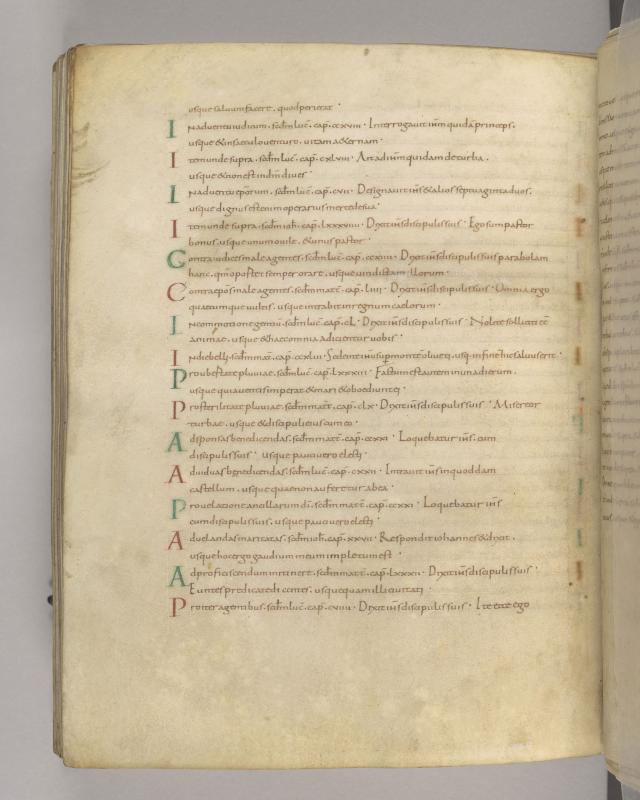 usque saluum facere, quod perierat ·
In aduentu iudicum, scđm luc̄ · cap̄ · ccxviii · Interrogauit ih̄m quidā princeps,
usque & in saeculo uenturo, uitam aeternam ·
Item unde supra, scđm luc̄ · cap̄ · cxlviii · Ait ad ih̄m quidam de turba,
usque & non est in dm̄ diues ·
In aduentu ep̄orum, scđm luc̄ · cap̄ · cvii · Designauit ih̄s & alios septuaginta duos,
usque dignus est enim operarius mercede sua ·
Item unde supra, scđm ioh̄ · cap̄ · lxxxviiii · Dixit ih̄s discipulis suis · Ego sum pastor
bonus, usque unum ouile, & unus pastor ·
Contra iudices male agentes, scđm luc̄ · cap̄ · ccxiii · Dixit ih̄s discipulis suis parabolam
hanc, qm̄ oportet semper orare, usque uindictam illorum ·
Contra ep̄os male agentes, scđm matt̄ · cap̄ · liiii · Dixit ih̄s discipulis suis · Omnia ergo
quaecumque uultis, usque intrabit in regnum caelorum ·
In commotione gentiū, scđm luc̄ · cap̄ · cl · Dixit ih̄s discipulis suis · Nolite solliciti eē
animae, usque & haec omnia adicientur uobis ·
In die belli, scđm matt̄ · cap̄ · ccxlii · Sedente ih̄u super montē oliueti, usq · in finē hic saluus erit ·
Pro ubertate pluuiae, scđm luc̄ · cap̄ · lxxxiii · Factum est autem in una dierum,
usque quia uentis imperat & mari & oboediunt ei ·
Pro sterilitate pluuiae, scđm matt̄ · cap̄ · clx · Dixit ih̄s discipulis suis · Misereor
turbae, usque & discipuli eius cum eo ·
Ad sponsas benedicendas, scđm matt̄ · cap̄ · ccxxi · Loquebatur ih̄s, cum
discipulis suis · usque pauci uero electi ·
Ad uiduas benedicendas, scđm luc̄ · cap̄ · cxxii · Intrauit ih̄s in quoddam
castellum, usque quae non auferetur ab ea ·
Pro uelatione ancillarum dī, scđm matt̄ · cap̄ · ccxxi · Loquebatur ih̄s
cum discipulis suis, usque pauci uero electi ·
Ad uelandas maritatas, scđm ioh̄ · cap̄ · xxvii · Respondit iohannes & dixit,
usque hoc ergo gaudium meum impletum est ·
Ad proficiscendum in itinere, scđm matt̄ · cap̄ · lxxxii · Dixit ih̄s discipulis suis ·
Euntes predicate dicentes, usque quam illi ciuitati ·
Pro iter agentibus, scđm luc̄ · cap̄ · cviiii · Dixit ih̄s discipulis suis · Ite ecce ego